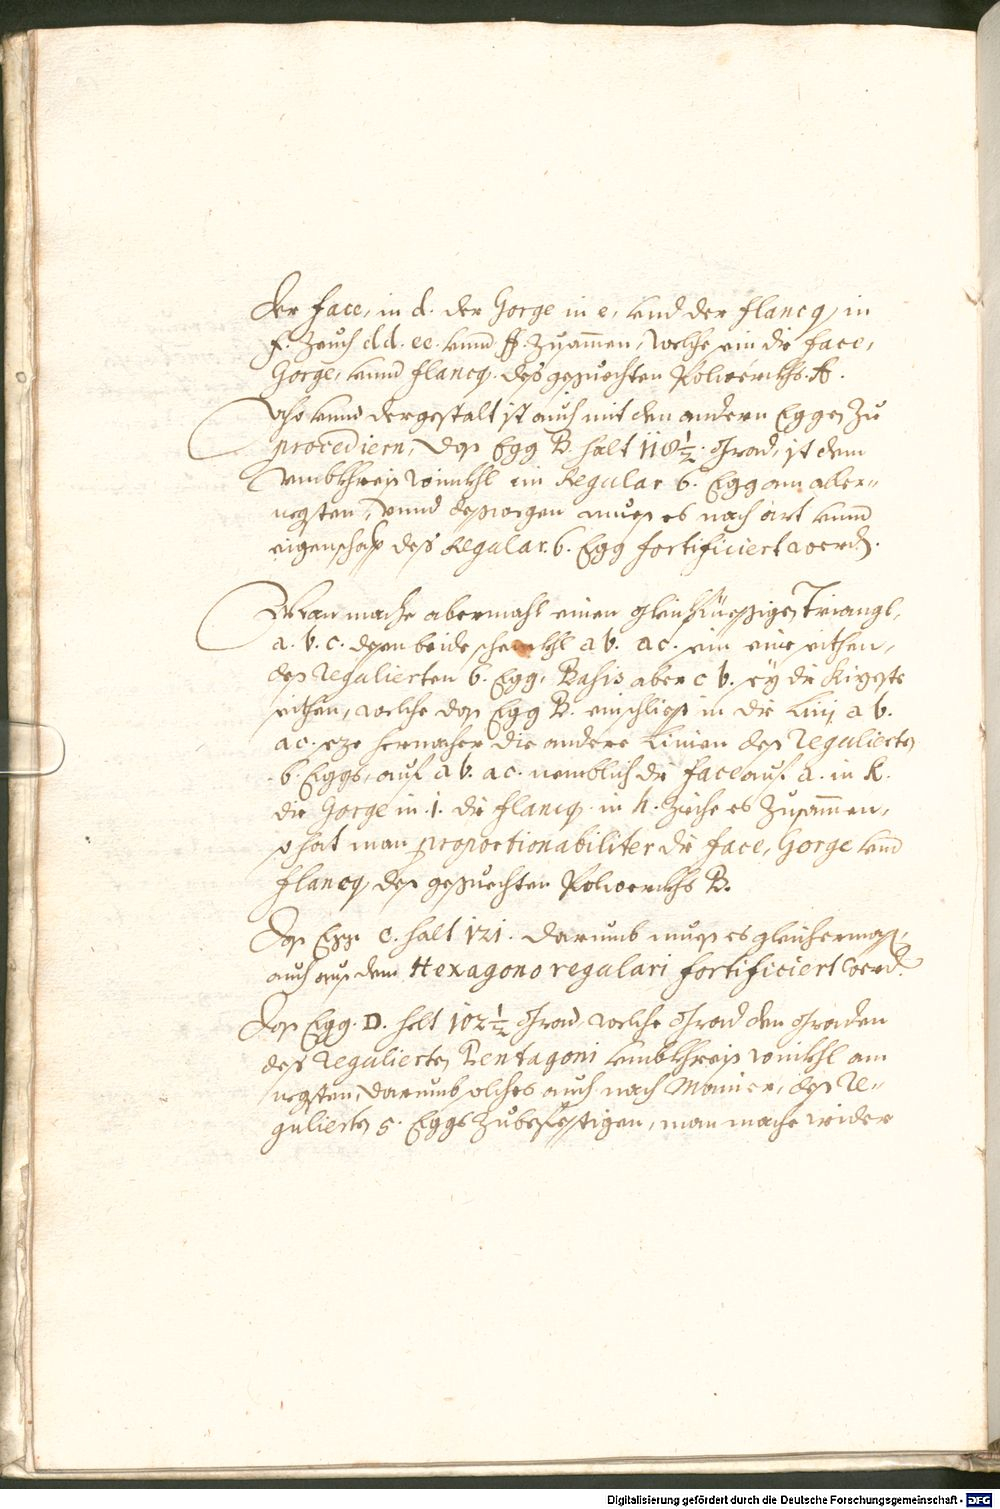 der face, in d. der Gorge in e, vnd der flancq, in
f. Zeuch dd. ee. vnnd ff. zusamen, welche sein die face,
Gorge, vnnd flancq. deß gesuechten Polwerckhs. A.
Also vnnd dergestalt ist auch mit den andern Eggen zu
procediern, Das Egg B. halt 118½. Grad, ist dem
vmbkhreis winckhl ein Regular 6. Egg am aller-
negsten, vnnd deswegen mues es nach art vnnd
eigenschafft deß Regular. 6. Egg fortificiert werden.
Man mache abermahl einen gleichfüessigen Triangl,
a. b. c. dessen beide schenckhl ab. ac. sein eine seithen,
des regulierten 6. Egg, Basis aber c b. sey die kürzste
seithen, welche das Egg B. einschliest in die Linj ab.
ac. seze hernacher die andere Linien des regulierten
6. Eggs, auf ab. ac. nemblich die face auß a. in k.
die Gorge in i. die flancq. in h. Ziehe es zusammen,
so hat man proportionabiliter die face, Gorge vnd
flancq, des gesuechten Polwerckhs B.
Das Egg. C. halt 121. darumb mues es gleichermass,
auch aus dem Hexagono regulari fortificiert werden.
Das Egg. D. helt 102½ Grad, welche Grad den Graden
deß regulierten Pentagoni vmbkhreis winckhl am
negsten, darumb solches auch nach Manier, des re-
gulierten 5. Eggs zubefestigen, man mache wider
Digitalisierung gefördert durch die Deutsche Forschungsgemeinschaft - DFG